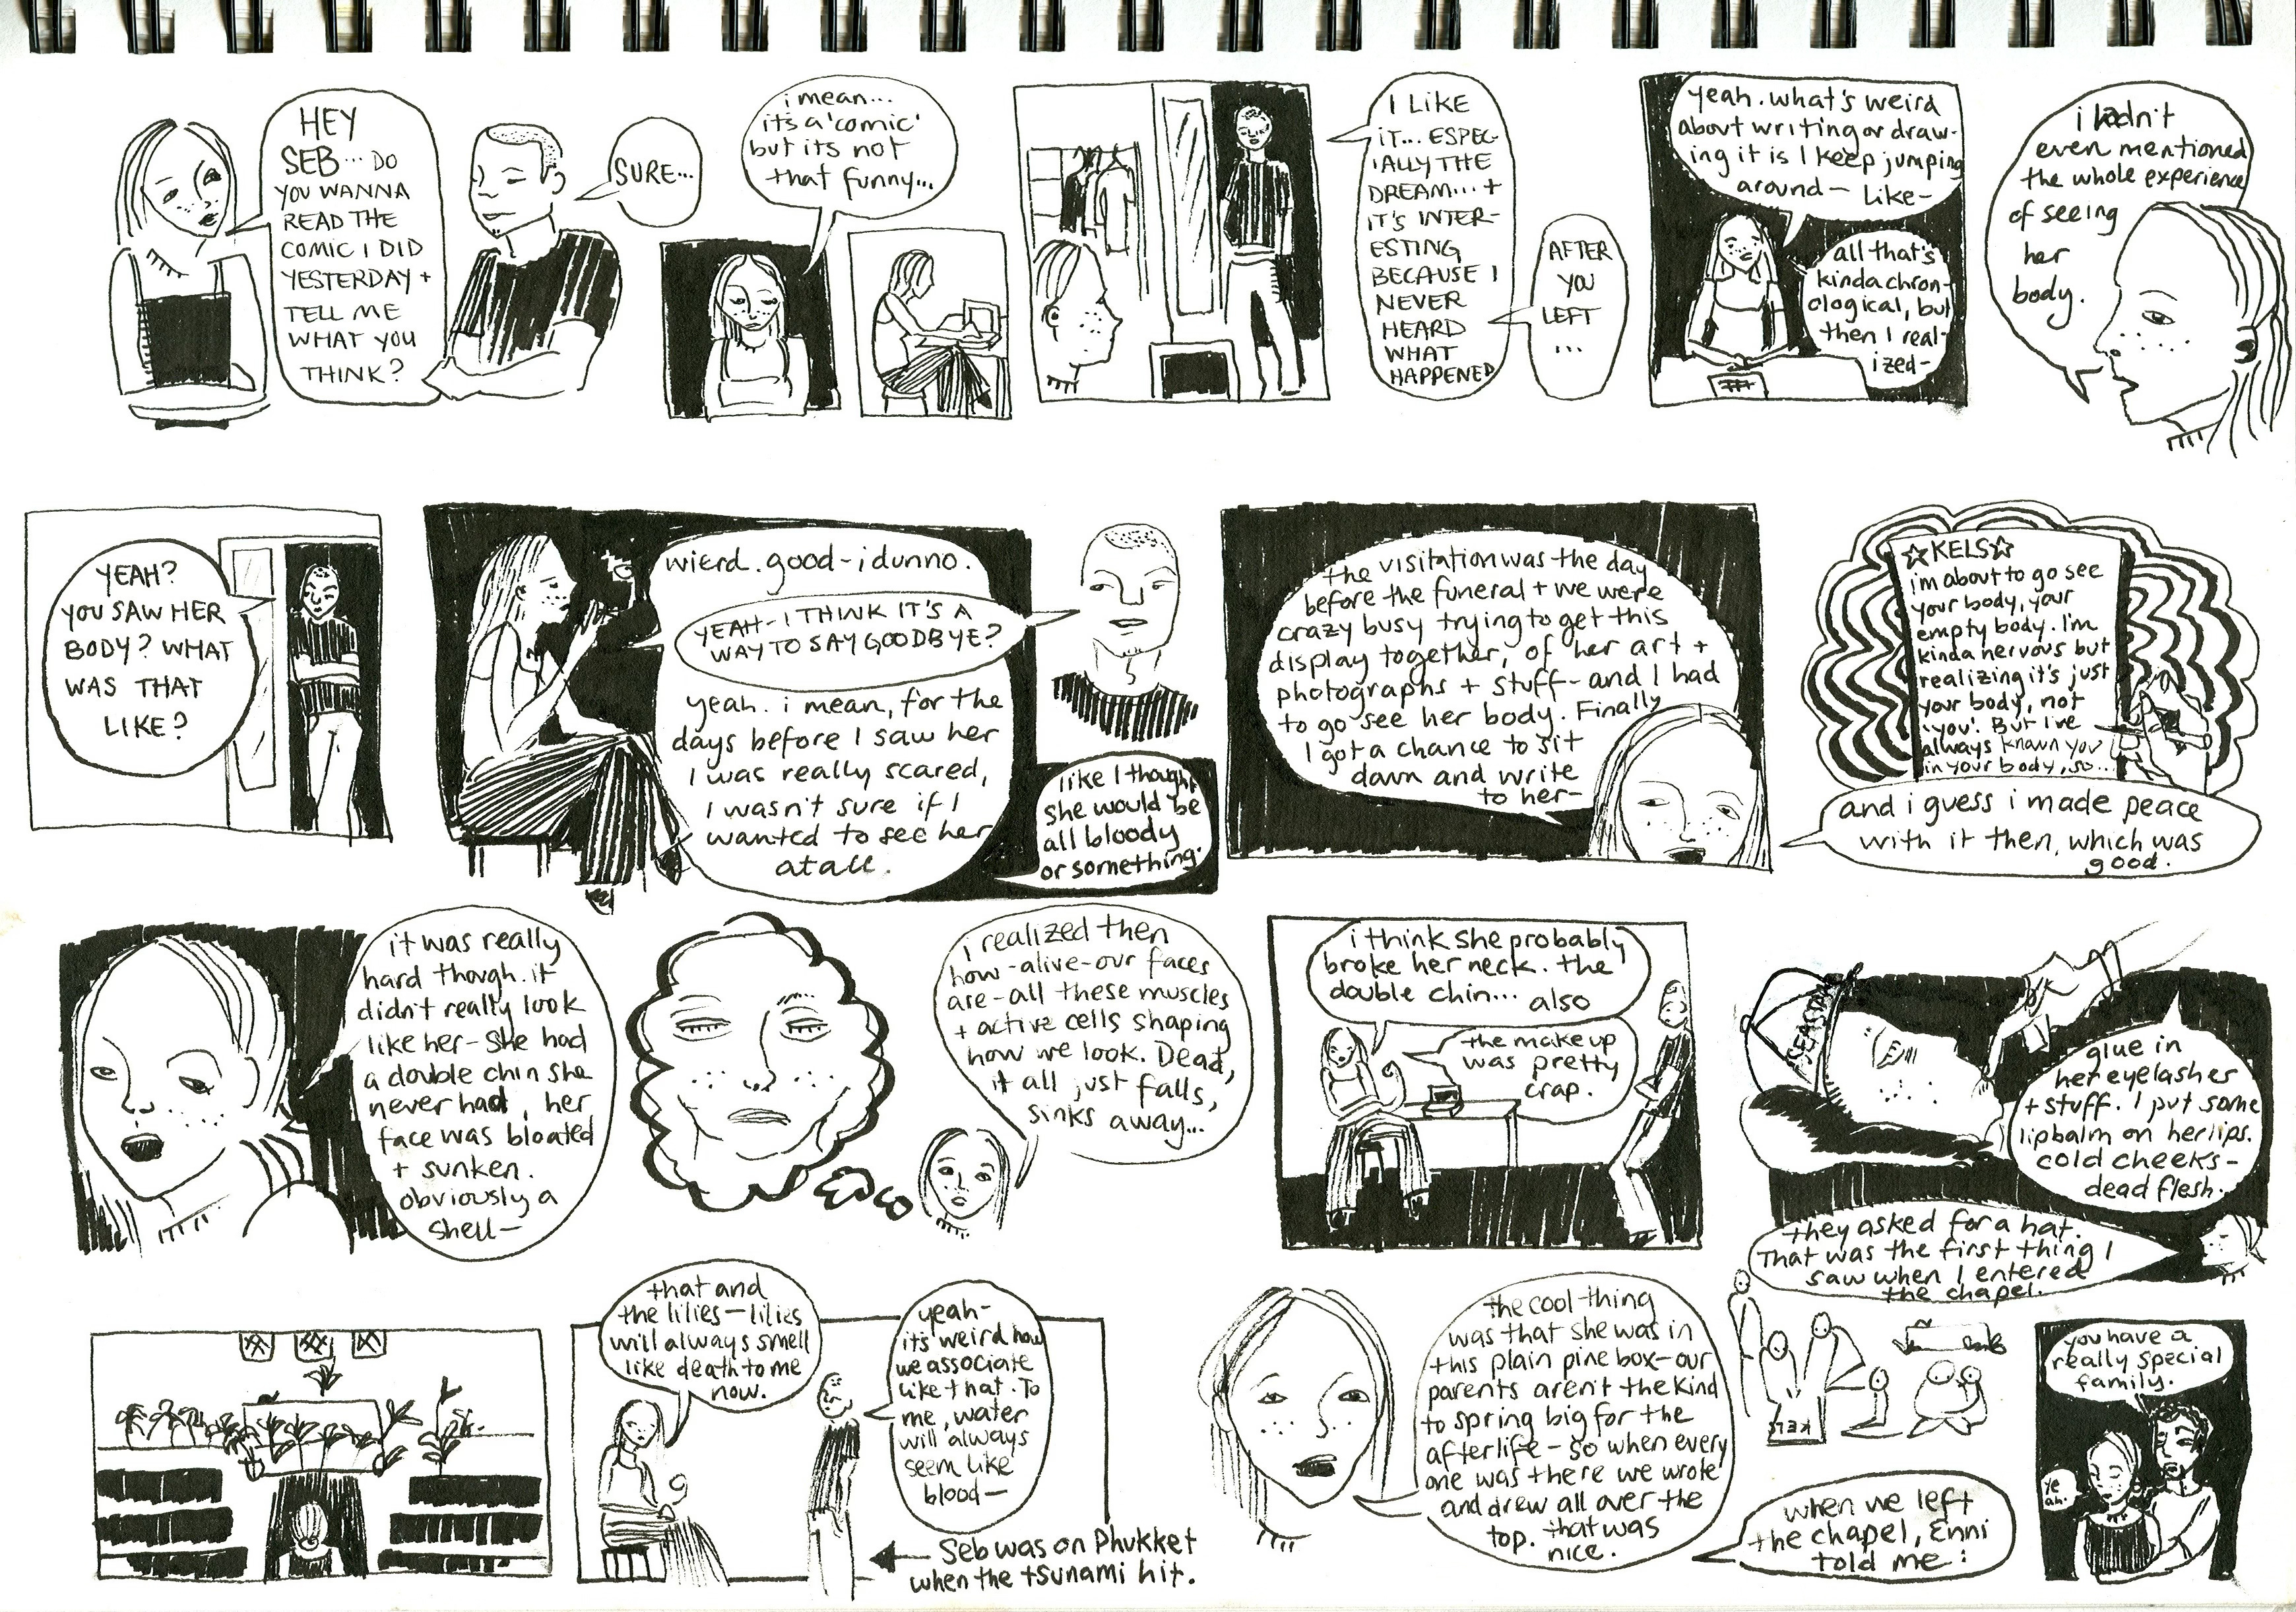 HEY
SEB... DO
YOU WANNA
READ THE
COMIC I DID
YESTERDAY +
TELL ME
WHAT YOU
THINK?
SURE...
i mean...
its a 'comic'
but its not
that funny...
I LIKE
IT... ESPEC-
IALLY THE
DREAM... +
IT'S INTER-
ESTING
BECAUSE I
NEVER
HEARD
WHAT
HAPPENED
AFTER
YOU
LEFT
...
yeah. what's weird
about writing or draw-
ing it is I keep jumping
around — like-
all that's
kinda chron-
ological, but
then I real-
ized-
i hadn't
even mentioned
the whole experience
of seeing
her
body.
YEAH?
YOU SAW HER
BODY? WHAT
WAS THAT
LIKE?
wierd. good - i dunno.
YEAH - I THINK IT'S A
WAY TO SAY GOODBYE?
yeah. i mean, for the
days before I saw her
I was really scared,
I wasn't sure if I
wanted to see her
at all.
like I though
she would be
all bloody
or something.
the visitation was the day
before the funeral + we were
crazy busy trying to get this
display together, of her art +
photographs + stuff - and I had
to go see her body. Finally
I got a chance to sit
down and write
to her-
☆KELS☆
im about to go see
your body, your
empty body. I'm
kinda nervous but
realizing it's just
your body, not
'you'. But I've
always known you
in your body, so...
and i guess i made peace
with it then, which was
good.
it was really
hard though. it
didn't really look
like her - she had
a double chin she
never had, her
face was bloated
+ sunken.
obviously a
shell —
i realized then
how - alive - our faces
are - all these muscles
+ active cells shaping
how we look. Dead,
it all just falls,
sinks away...
i think she probably
broke her neck. the
double chin... also
the makeup
was pretty
crap.
SEASICK
glue in
her eyelashes
+ stuff. I put some
lipbalm on her lips.
cold cheeks -
dead flesh.
they asked for a hat.
That was the first thing I
saw when I entered
the chapel.
that and
the lilies — lilies
will always smell
like death to me
now.
yeah-
it's weird how
we associate
like that. To
me, water
will always
seem like
blood —
Seb was on Phukket
when the tsunami hit.
the cool thing
was that she was in
this plain pine box - our
parents aren't the kind
to spring big for the
afterlife - so when every
one was there we wrote
and drew all over the
top. that was
nice.
KELS
when we left
the chapel, Enni
told me:
you have a
really special
family.
ye
ah.